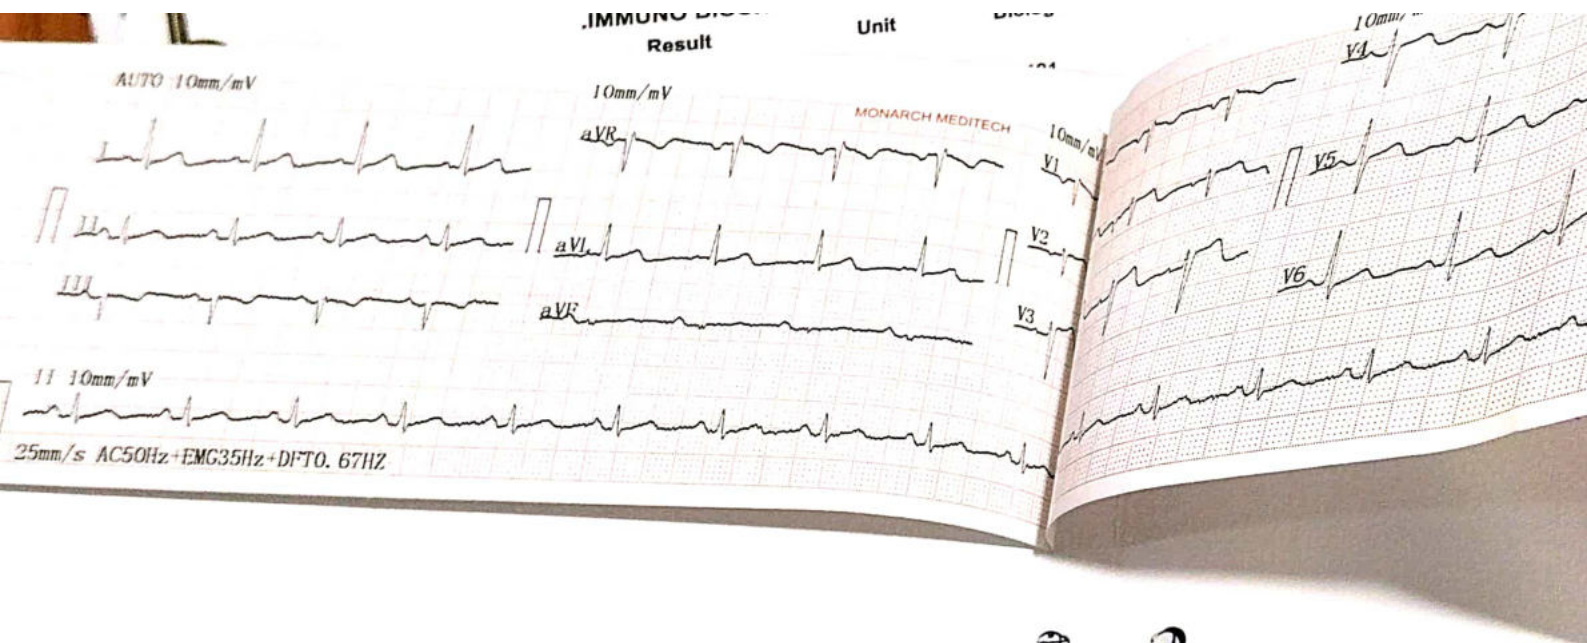 .IMMUNO
Result
Unit
AUTO 10mm/mV
10mm/mV
MONARCH MEDITECH
10mm/mV
10mm/
I
aVR
V1
V4
II
aVL
V2
V5
III
aVF
V3
V6
II 10mm/mV
25mm/s AC50Hz+EMG35Hz+DFT0.67HZ